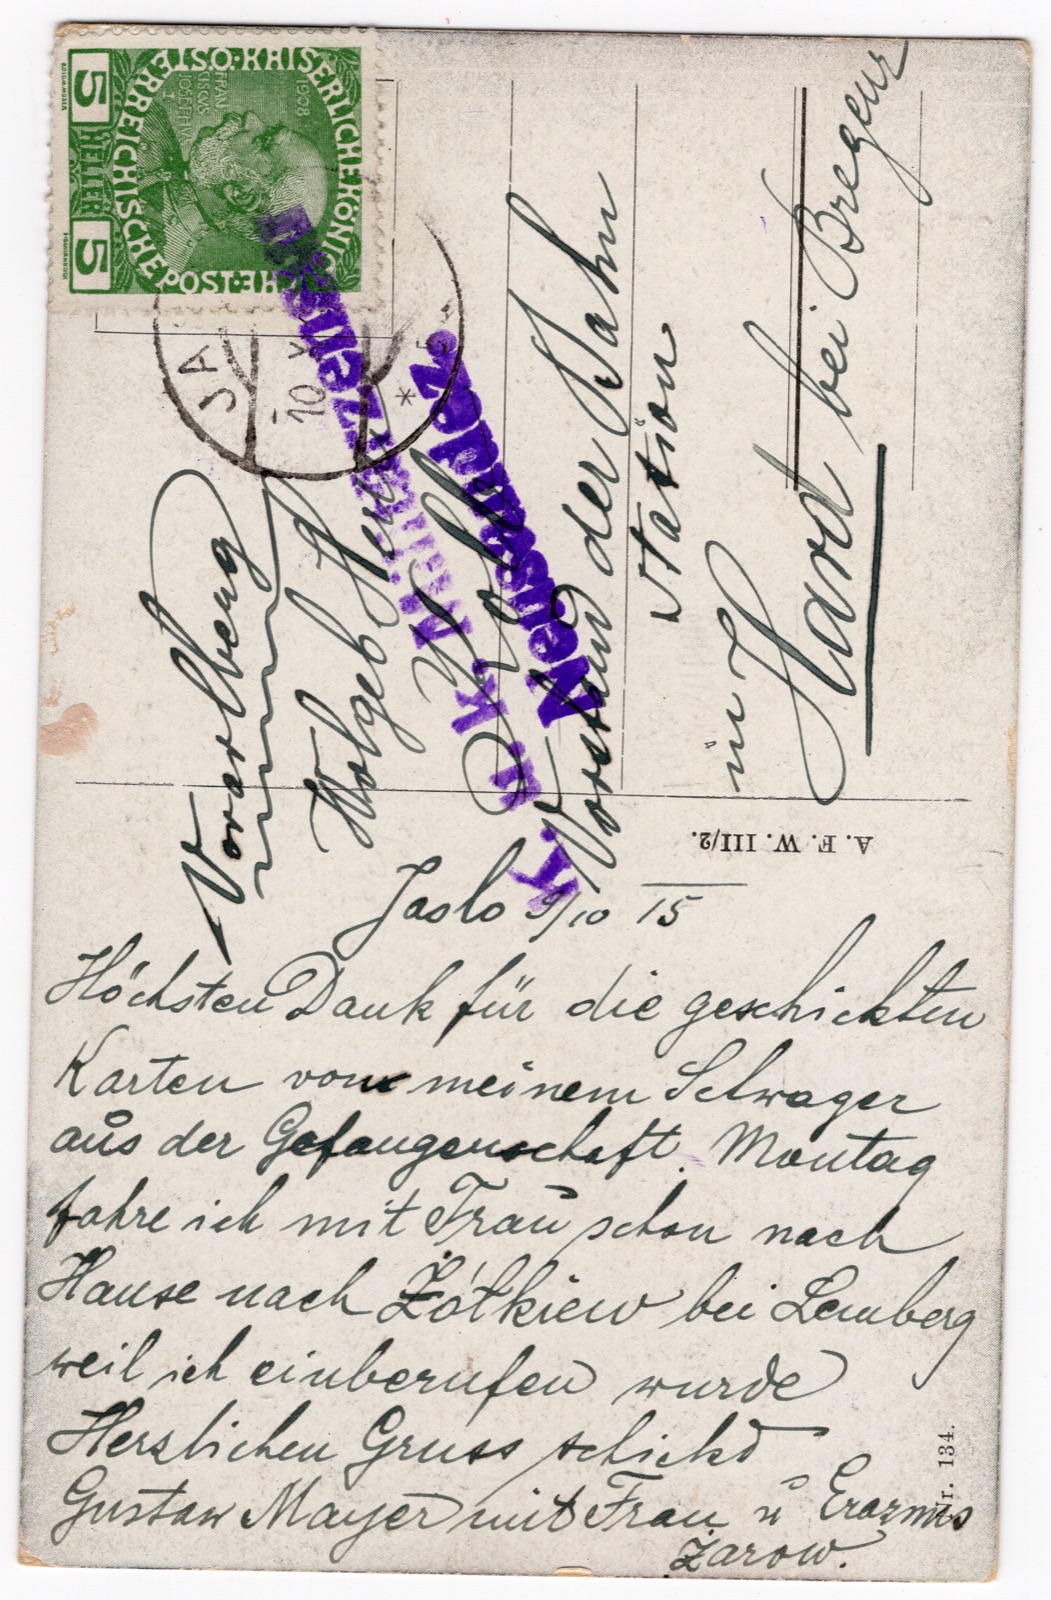 KAISERLICHE KÖNIGLICHE ÖSTERREICHISCHE POST
FRANCISCVS IOSEPHVS I
1908
5 HELLER 5
JA
10 X
K. u. K. Militärzensur
Neusandez.
Vorarlberg
Wolgeb Herr
Vorstand der Bahn
Station
in Hard bei Bregenz
A. F. W. III/2.
Jaslo 9/10 15
Höchsten Dank für die geschickten
Karten von meinem Schwager
aus der Gefangenschaft. Montag
fahre ich mit Frau schon nach
Hause nach Żółkiew bei Lemberg
weil ich einberufen wurde
Herzlichen Gruss schickd
Gustaw Mayer mit Frau u Erazmis
Żarow.
Nr. 134.